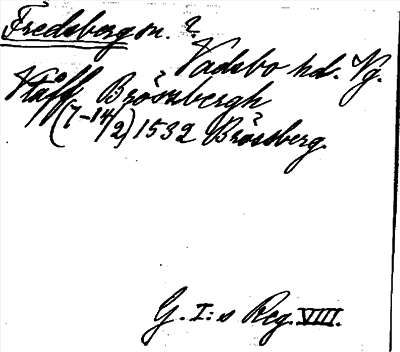 Fredsberg sn. ?
Vadsbo hd. Vg.
Kläff Bröszbergh
(7-14/2) 1532 Brössberg.
G. I:s Reg. VIII.